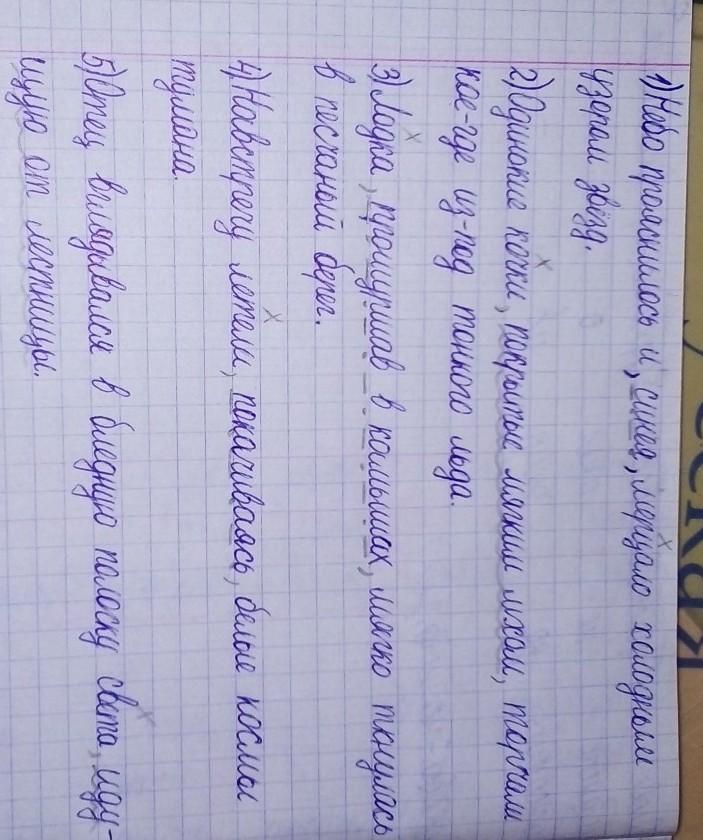 1) Небо прояснилось и, синея, мерцало холодным
узором звёзд.
2) Одинокие кочки, покрытые мягким мхом, торчали
кое-где из-под тонкого льда.
3) Лодка, прошуршав в камышах, мягко ткнулась
в песчаный берег.
4) Навстречу летели, покачиваясь, белые космы
тумана.
5) Отец вглядывался в бледную полоску света, иду-
щую от лестницы.